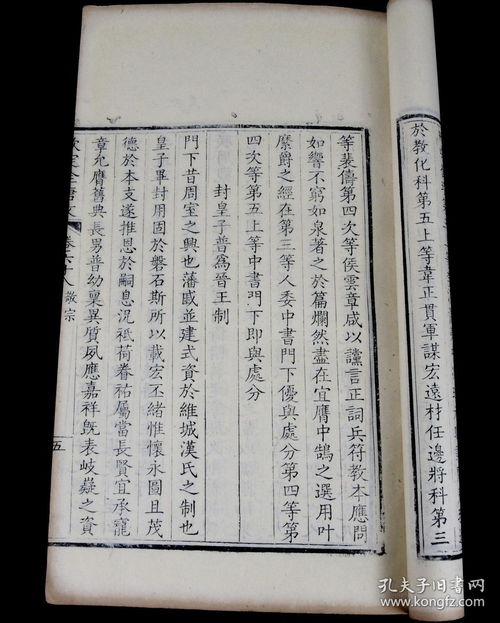 於教化科第五上等韋正貫軍謀宏遠材任邊將科第三
等裴儔第四次等侯雲章咸以讜言正詞兵符教本應問
如響不窮如泉著之於篇爛然盡在宜膺中鵠之選用叶
縻爵之經在第三等人委中書門下優與處分第四等第
四次等第五上等中書門下即與處分
封皇子普為晉王制
門下昔周室之興也藩戚並建式資於維城漢氏之制也
皇子畢封用固於磐石斯所以載宏丕緒惟懷永圖且茂
德於本支遂推恩於嗣息況祗荷眷祐屬當長賢宜承寵
章允膺舊典長男普幼稟異質夙應嘉祥旣表岐嶷之資
欽定全唐文
卷六十八
敬宗
五
孔夫子旧书网
www.kongfz.com